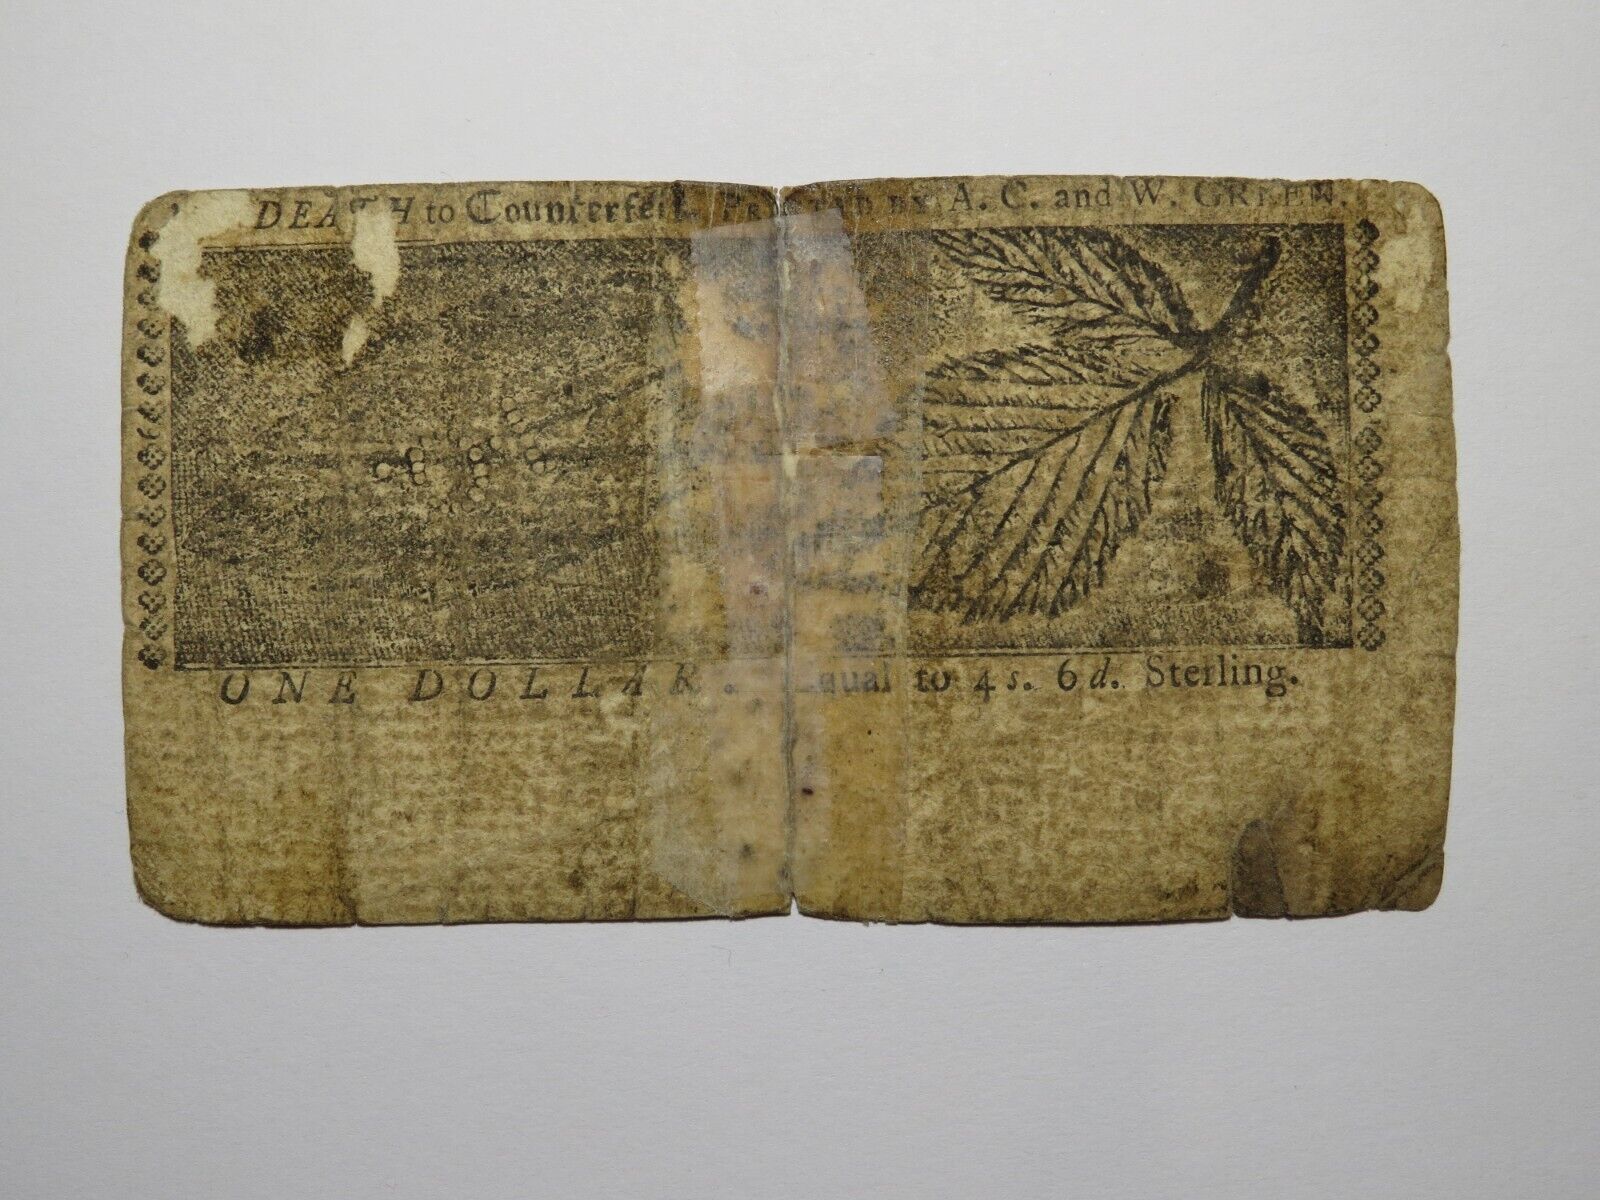 DEATH to Counterfeit. PRINTED BY A. C. and W. GREEN.
ONE DOLLAR. Equal to 4 s. 6 d. Sterling.